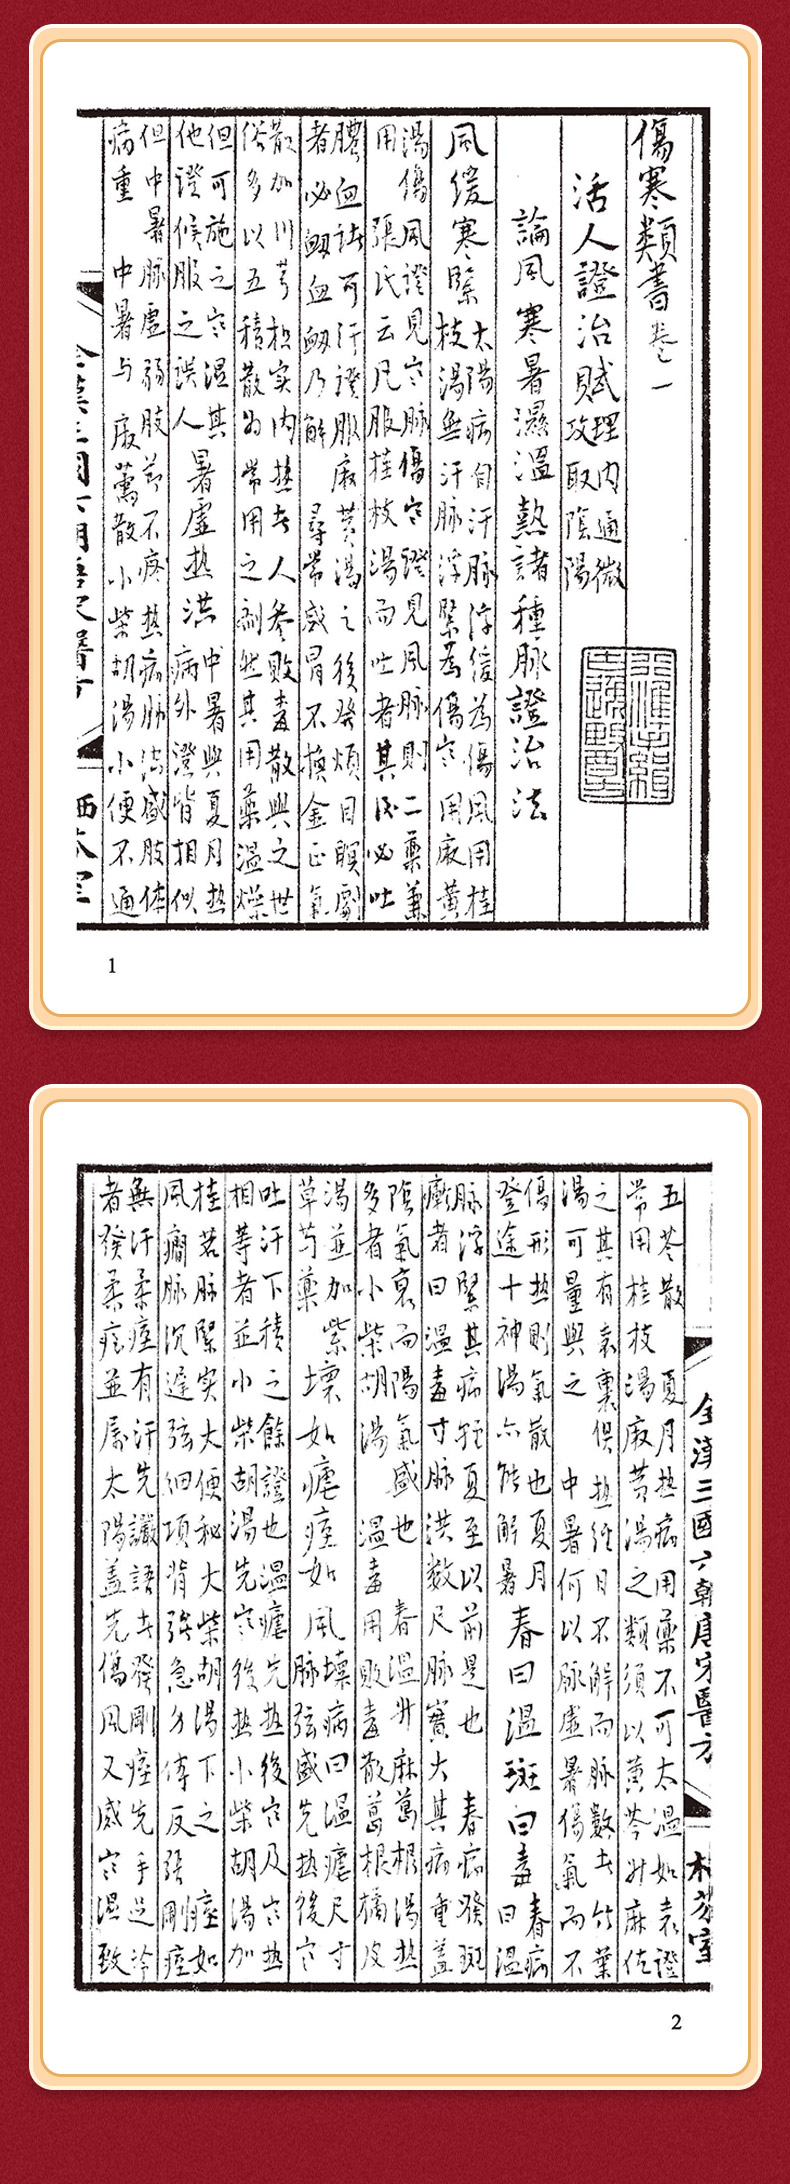 傷寒類書卷一
活人證治賦
理內通微
攻取陰陽
論風寒暑濕溫熱諸種脈證治法
風緩寒緊
太陽病自汗脈浮緩為傷風用桂
枝湯無汗脈浮緊為傷寒用麻黃
湯傷風證見寒脈傷寒證見風脈則二藥兼
用 張氏云凡服桂枝湯而吐者其後必吐
膿血
者必衂血衂乃解 尋常感冒不換金正氣
散加川芎枳實內熱者人參敗毒散與之世
俗多以五積散為常用之劑然其用藥溫燥
但可施之寒濕其
他證候服之誤人
暑虛熱洪
中暑與夏月熱
病外證皆相似
但中暑脈虛弱肢節不疼熱病脈洪盛肢体
病重 中暑与
散小柴胡湯小便不通
1
五苓散 夏月熱病用藥不可太溫如表證
常用桂枝湯麻黃湯之類須以黃芩升麻佐
之其有表裏俱熱經日不解而脈數者竹葉
湯可量與之 中暑何以脈虛暑傷氣而不
傷形熱則氣散也夏月
登途十神湯亦能解暑
春曰溫斑曰毒
春病
曰溫
脈浮緊其病輕夏至以前是也 春病發斑
癍者曰溫毒寸脈洪數尺脈實大其病重蓋
陰氣衰而陽氣盛也 春溫升麻葛根湯熱
多者小柴胡湯 溫毒用敗毒散葛根橘皮
湯並加紫
草等藥
壞如瘧痓如風
壞病曰溫瘧尺寸
脈弦盛先熱後寒
吐汗下積之餘證也溫瘧先熱後寒及寒熱
相等者並小柴胡湯先寒後熱小柴胡湯加
桂若脈緊实大便秘大柴胡湯下之 痓如
風癇脈沉遲弦細項背强急身体反張剛痓
無汗柔痓有汗先讝語者發剛痓先手足冷
者發柔痓並屬太陽蓋先傷風又感寒濕致
全漢三國六朝唐宋醫方
2